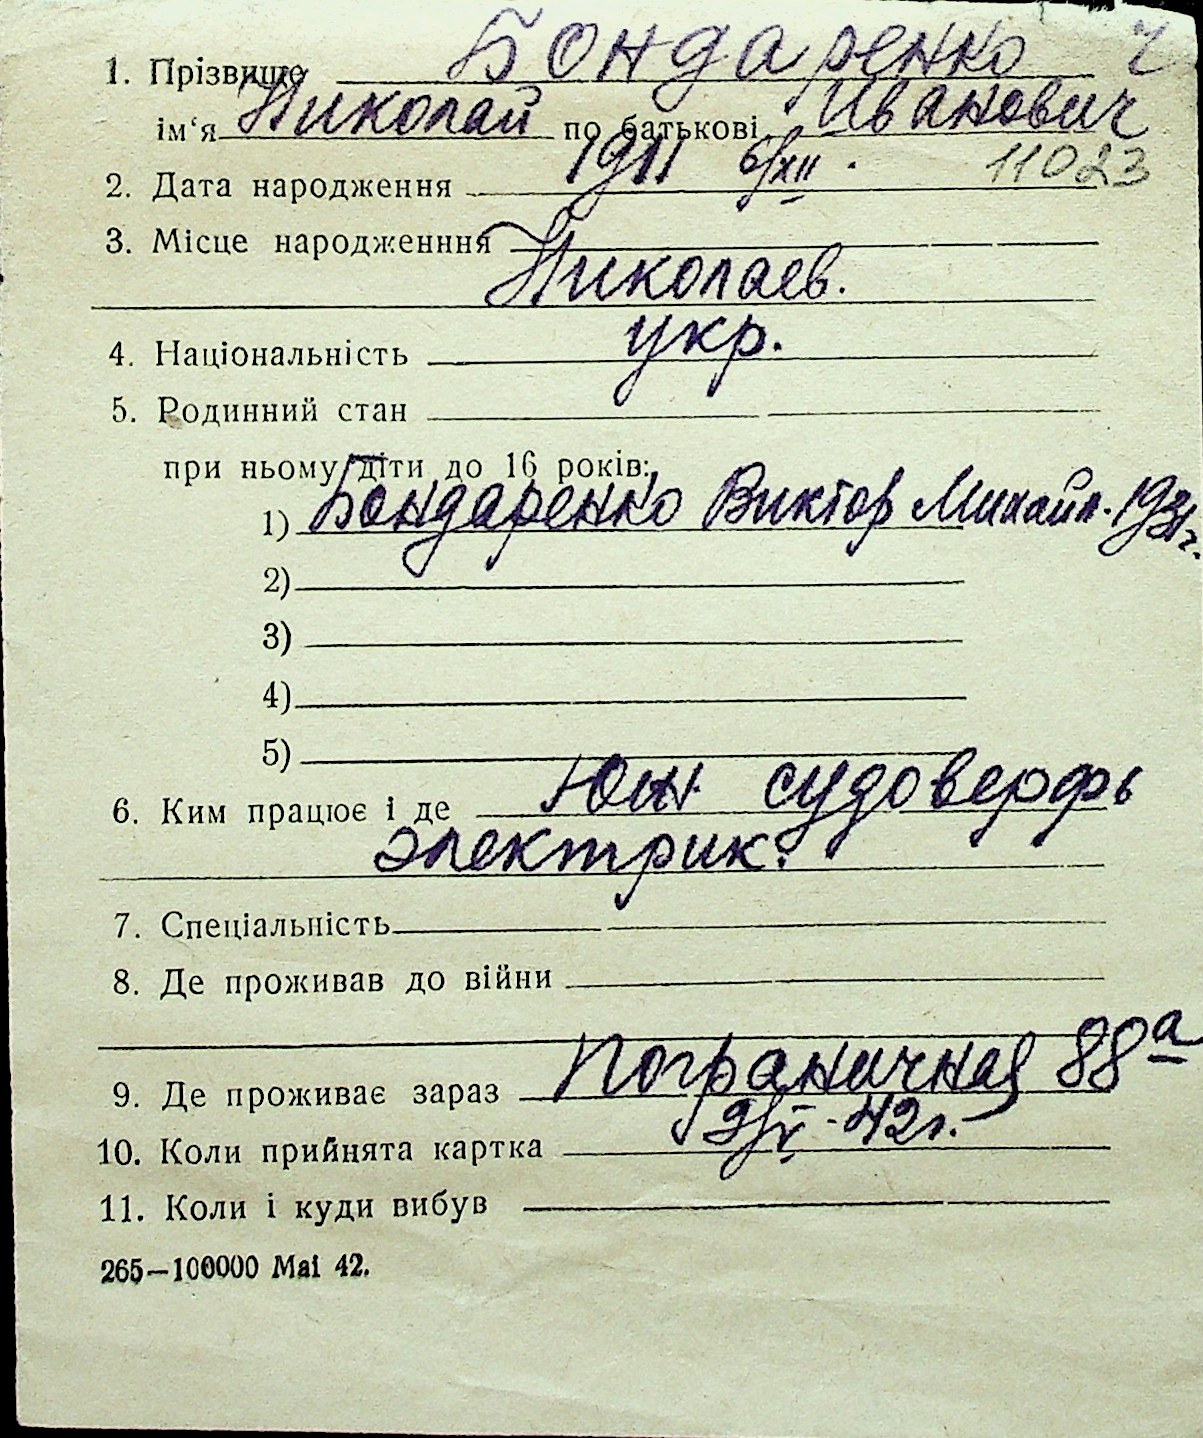 1. Прізвище Бондаренко Ч
ім‘я Николай по батькові Иванович
2. Дата народження 1911 6/XII. 11023
3. Місце народженння
Николаев.
4. Національність укр.
5. Родинний стан
при ньому діти до 16 років:
1) Бондаренко Виктор Михайл. 1931г.
2)
3)
4)
5)
6. Ким працює і де Юж. судоверфь
электрик.
7. Спеціальність
8. Де проживав до війни
9. Де проживає зараз Пограничная 88а
10. Коли прийнята картка 9/V-42г.
11. Коли і куди вибув
265—100000 Mai 42.